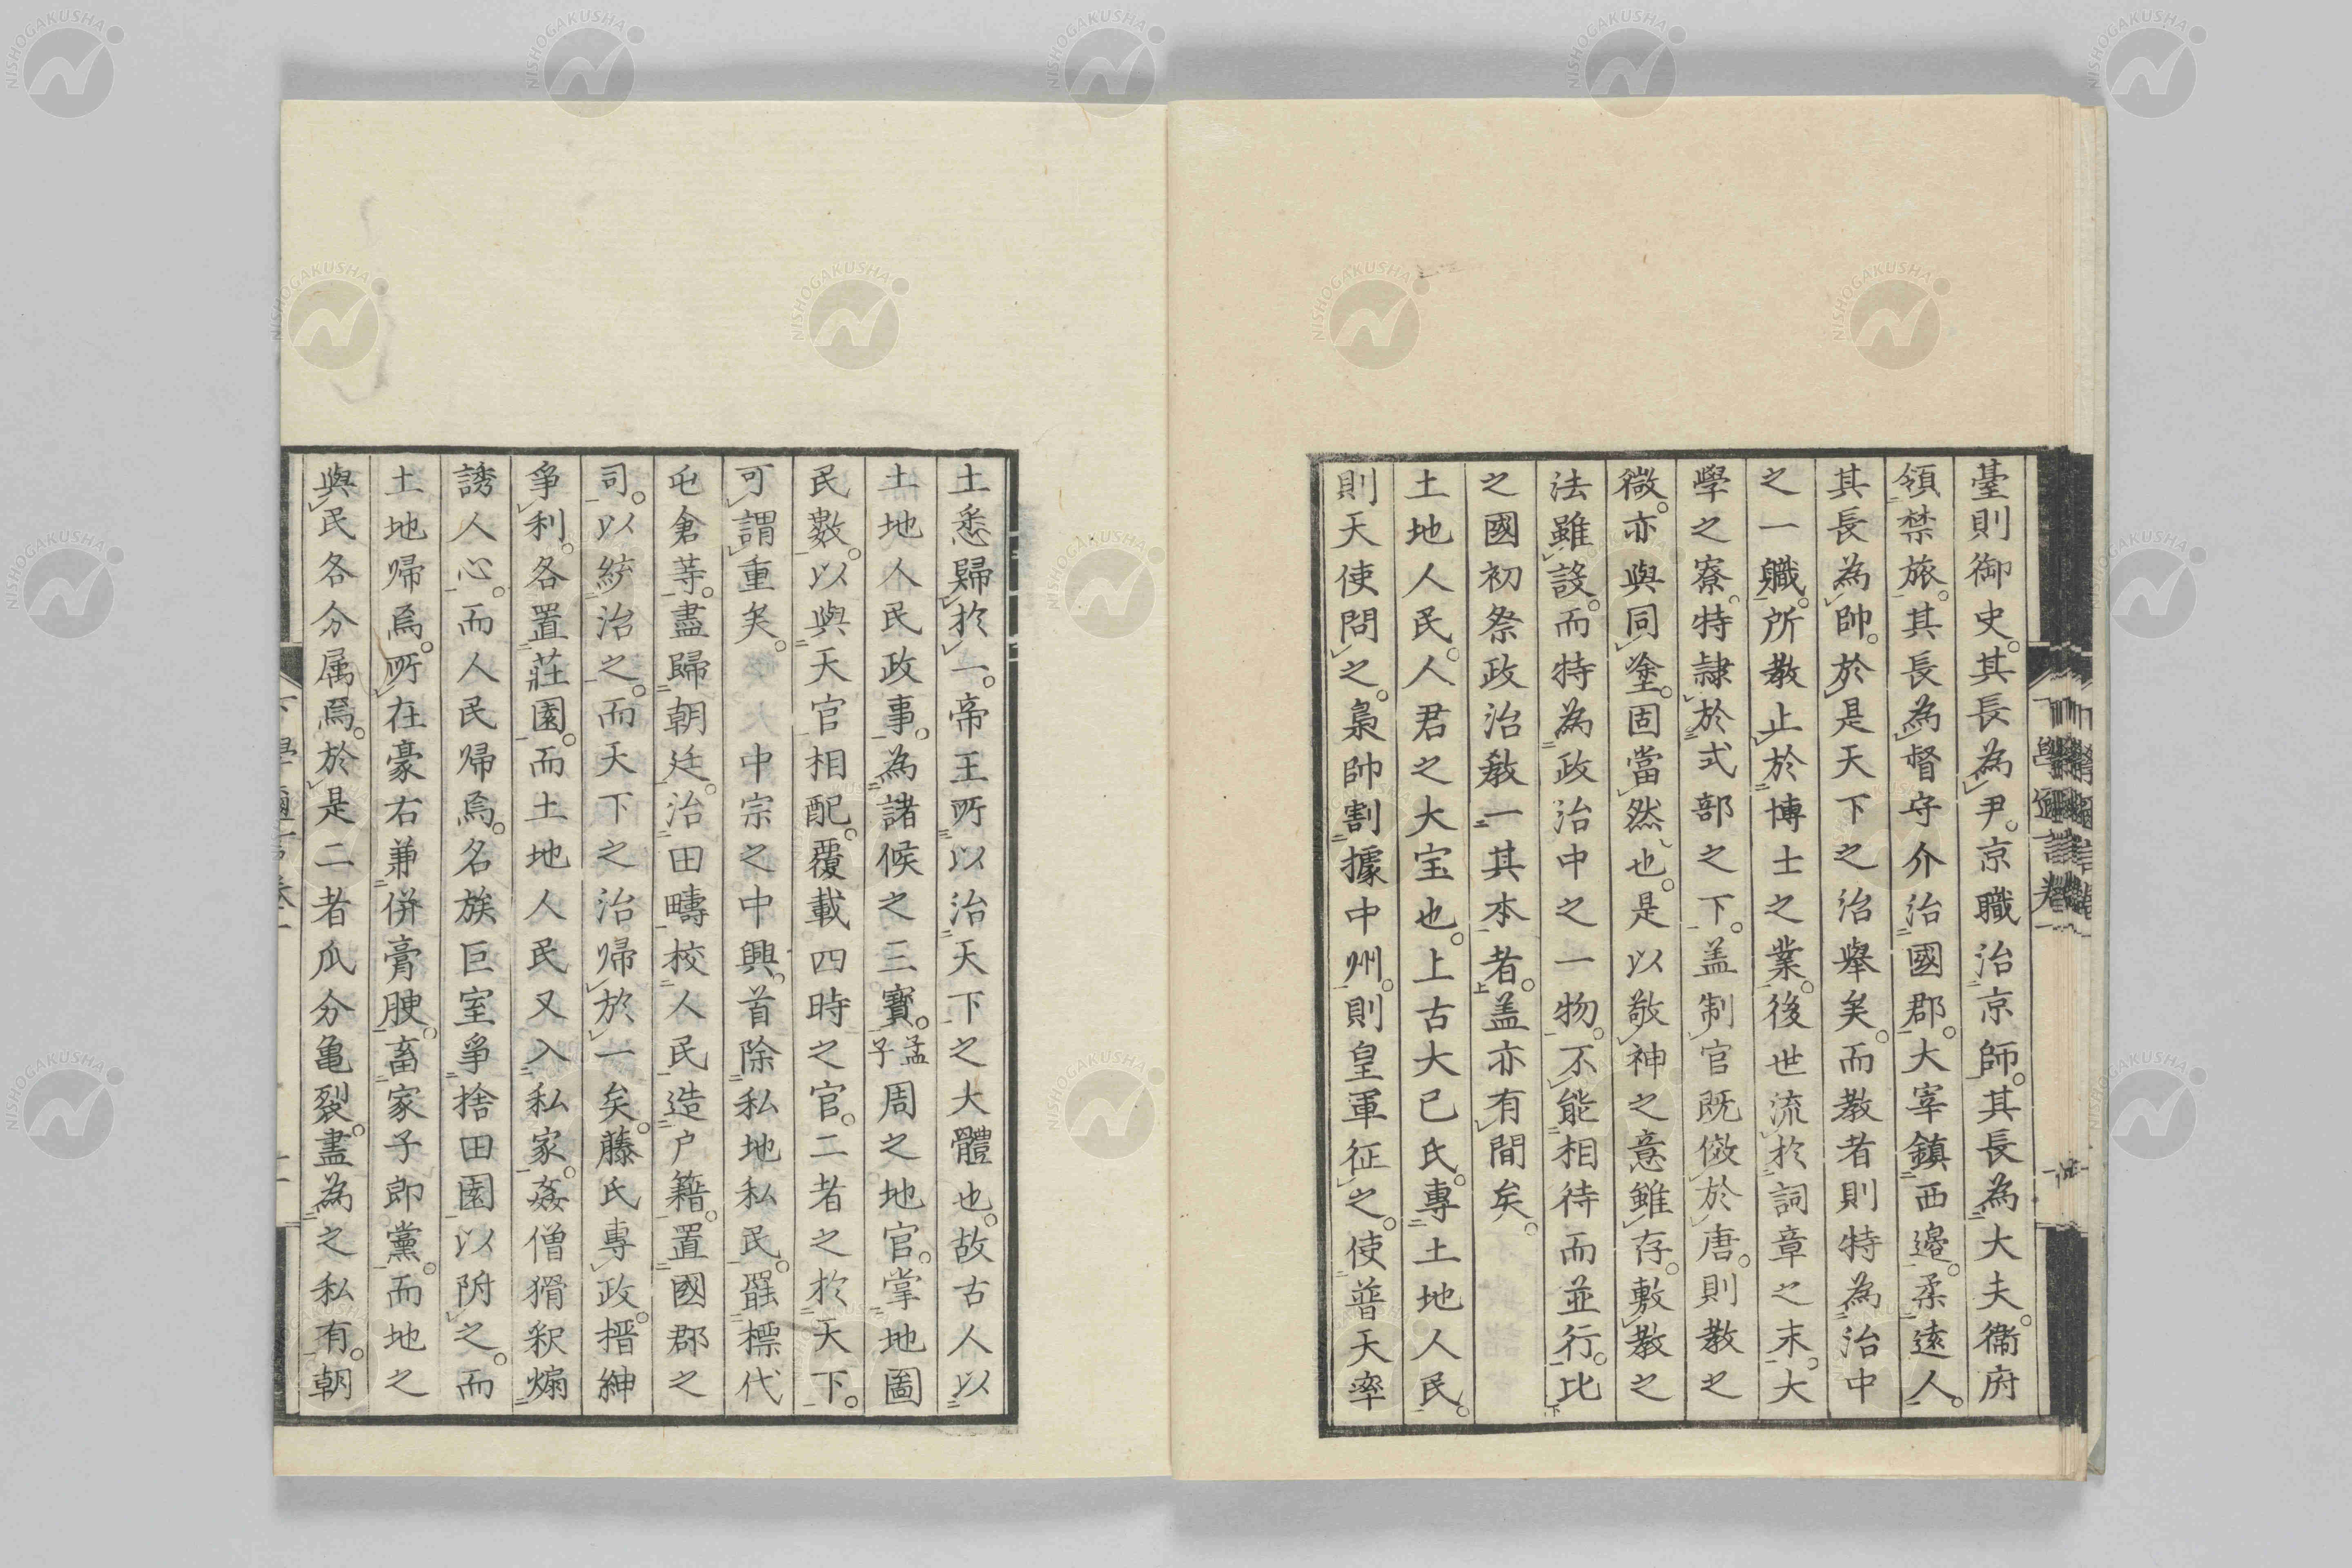 臺則御史。其長為尹。京職治京師。其長為大夫。衞府
領禁旅。其長為督守介治國郡。大宰鎮西邊。柔遠人。
其長為帥。於是天下之治舉矣。而教者則特為治中
之一職。所教止於博士之業。後世流於詞章之末。大
學之寮。特隷於式部之下。盖制官既倣於唐。則教之
微。亦與同塗。固當然也。是以敬神之意雖存。敷教之
法雖設。而特為政治中之一物。不能相待而並行。比
之國初祭政治教一其本者。盖亦有間矣。
土地人民。人君之大宝也。上古大己氏。專土地人民。
則天使問之。梟帥割據中州。則皇軍征之。使普天率
土悉歸於一。帝王所以治天下之大體也。故古人以
土地人民政事。為諸候之三寶。孟子周之地官。掌地圖
民數。以與天官相配。覆載四時之官。二者之於天下。
可謂重矣。中宗之中興。首除私地私民。罷標代
屯倉等。盡歸朝廷。治田疇校人民造户籍。置國郡之
司。以統治之。而天下之治帰於一矣。藤氏專政。搢紳
爭利。各置莊園。而土地人民又入私家。姦僧猾釈煽
誘人心。而人民帰焉。名族巨室爭捨田園以附之。而
土地帰焉。所在豪右兼併膏腴。畜家子郎黨。而地之
與民各分属焉。於是二者瓜分亀裂。盡為之私有。朝
NISHOGAKUSHA